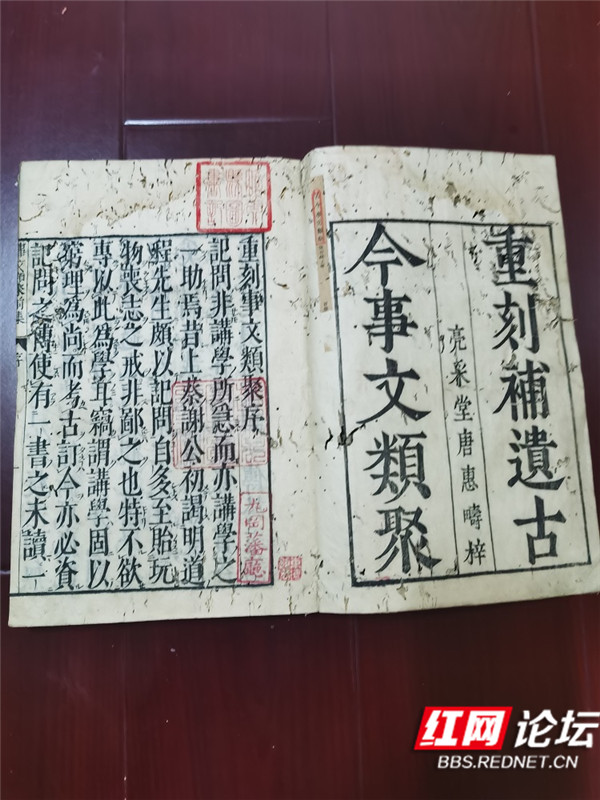 重刻補遺古
今事文類聚
亮采堂唐惠疇梓
重刻事文類聚序
記問非講學所急而亦講學之
一助焉昔上蔡謝公初謁明道
程先生頗以記問自多至貽玩
物喪志之戒非鄙之也特不欲
專以此為學耳竊謂講學固以
窮理為尚而考古訂今亦必資
記問之博使有一書之未讀一
紅网论坛
BBS.REDNET.CN